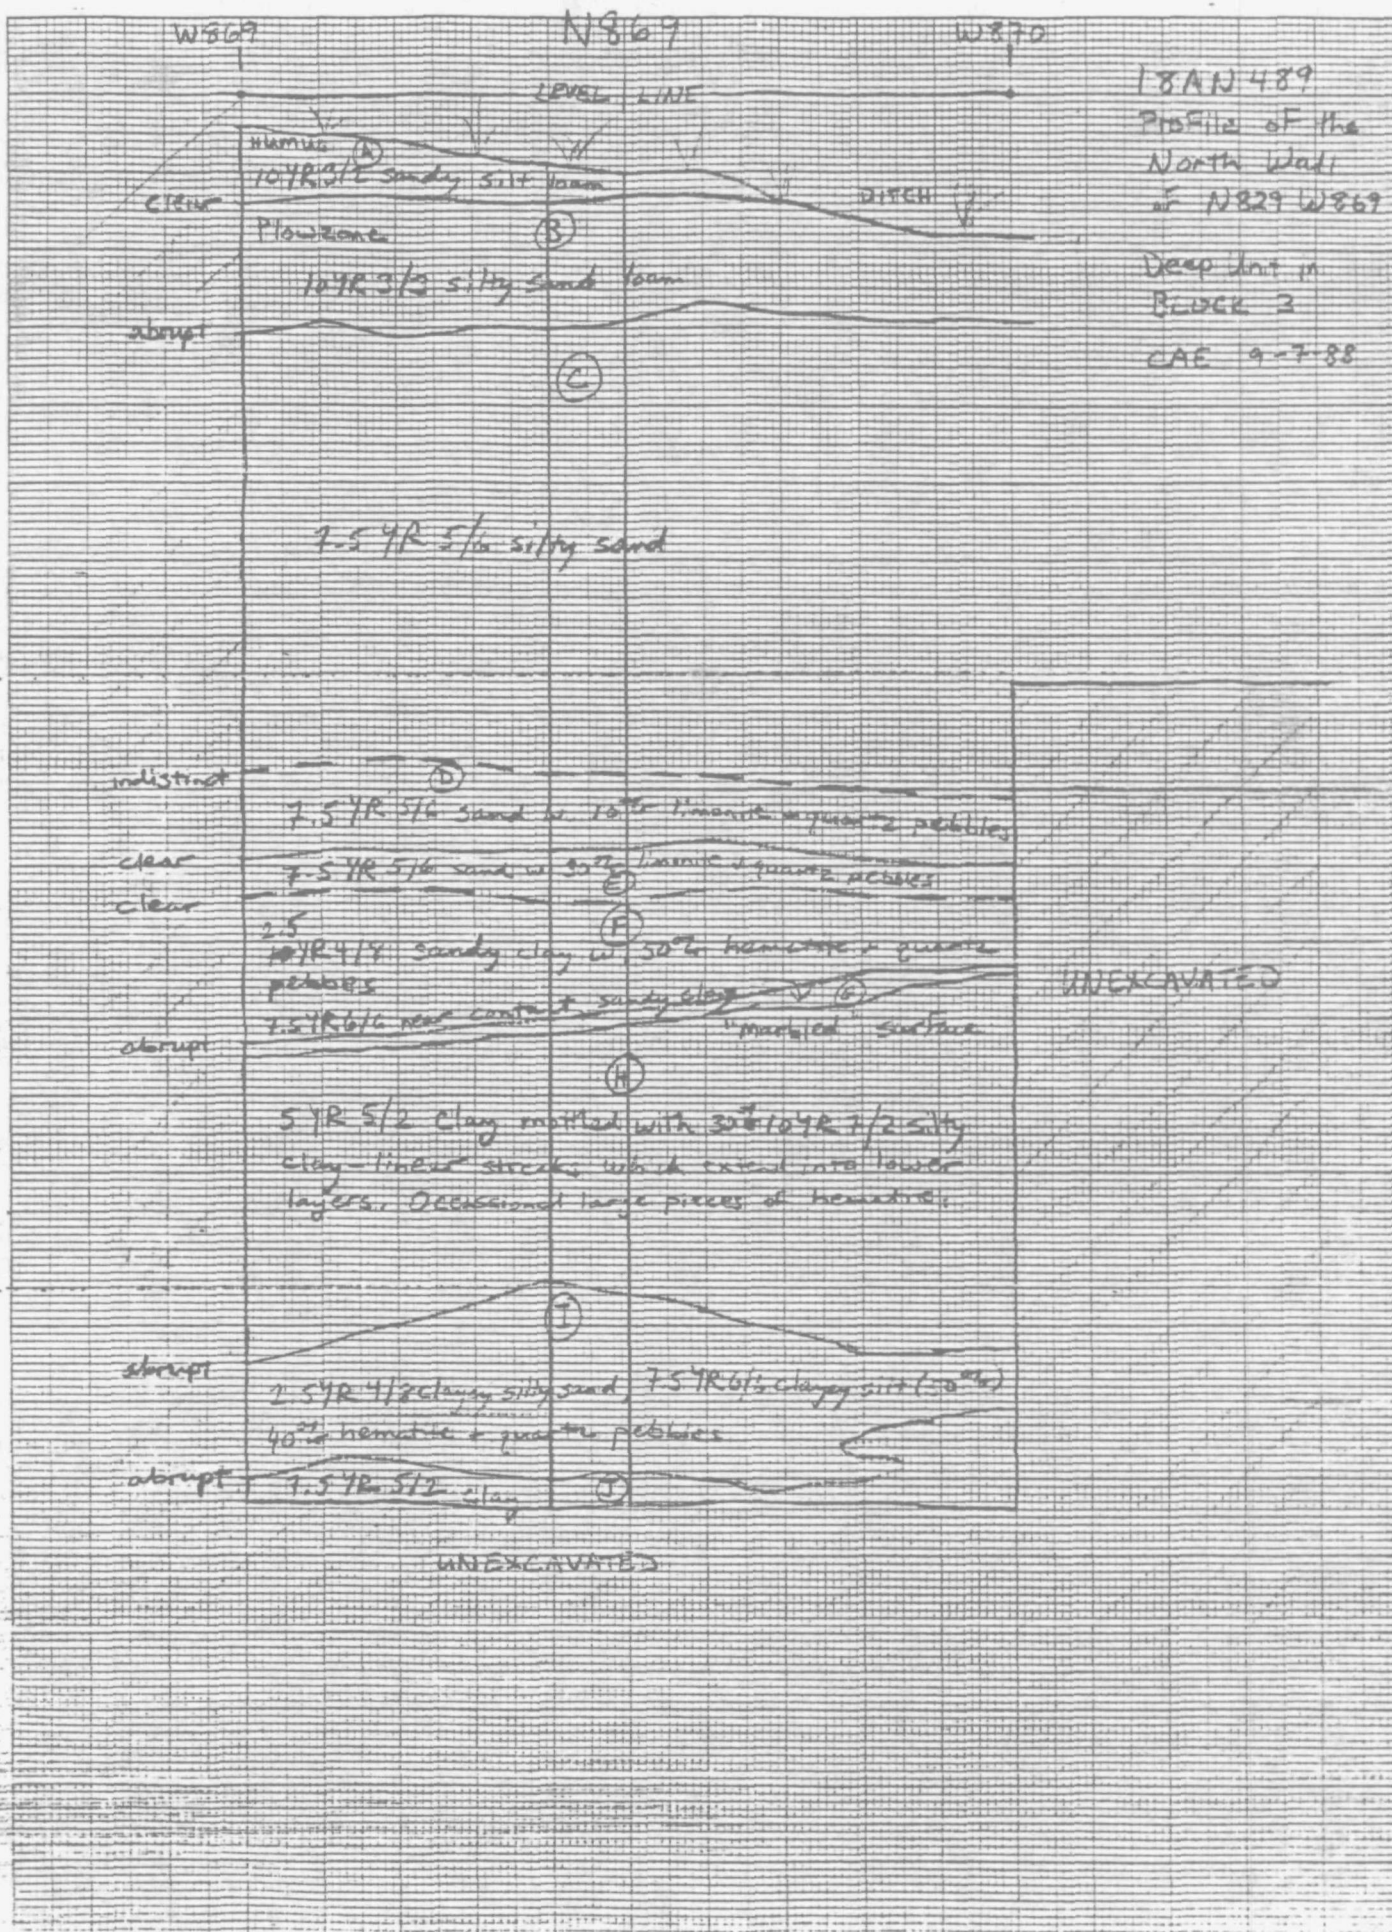 W869 N869 W870
LEVEL LINE
18AN489
Profile of the
North Wall
of N829 W869
Deep Unit in
BLOCK 3
CAE 9-7-88
Humus A
10YR 3/2 sandy silt loam
clear
DITCH
Plowzone B
10YR 3/3 silty sand loam
abrupt
C
7.5 YR 5/6 silty sand
indistinct
D
7.5 YR 5/6 sand w. 10% limonite + quartz pebbles
clear
7.5 YR 5/6 sand w. 30% limonite + quartz pebbles
E
clear
F
2.5
YR 4/8 sandy clay w. 50% hematite + quartz
pebbles
7.5YR 6/6 near contact, sandy clay G
"Marbled" surface
abrupt
UNEXCAVATED
H
5 YR 5/2 Clay mottled with 30% 10YR 7/2 silty
clay-linear streaks which extend into lower
layers. Occassional large pieces of hematite.
I
abrupt
2.5YR 4/8 clayey silty sand, 7.5YR 6/6 clayey silt (50%)
40% hematite + quartz pebbles
abrupt
7.5YR 5/2 clay J
UNEXCAVATED